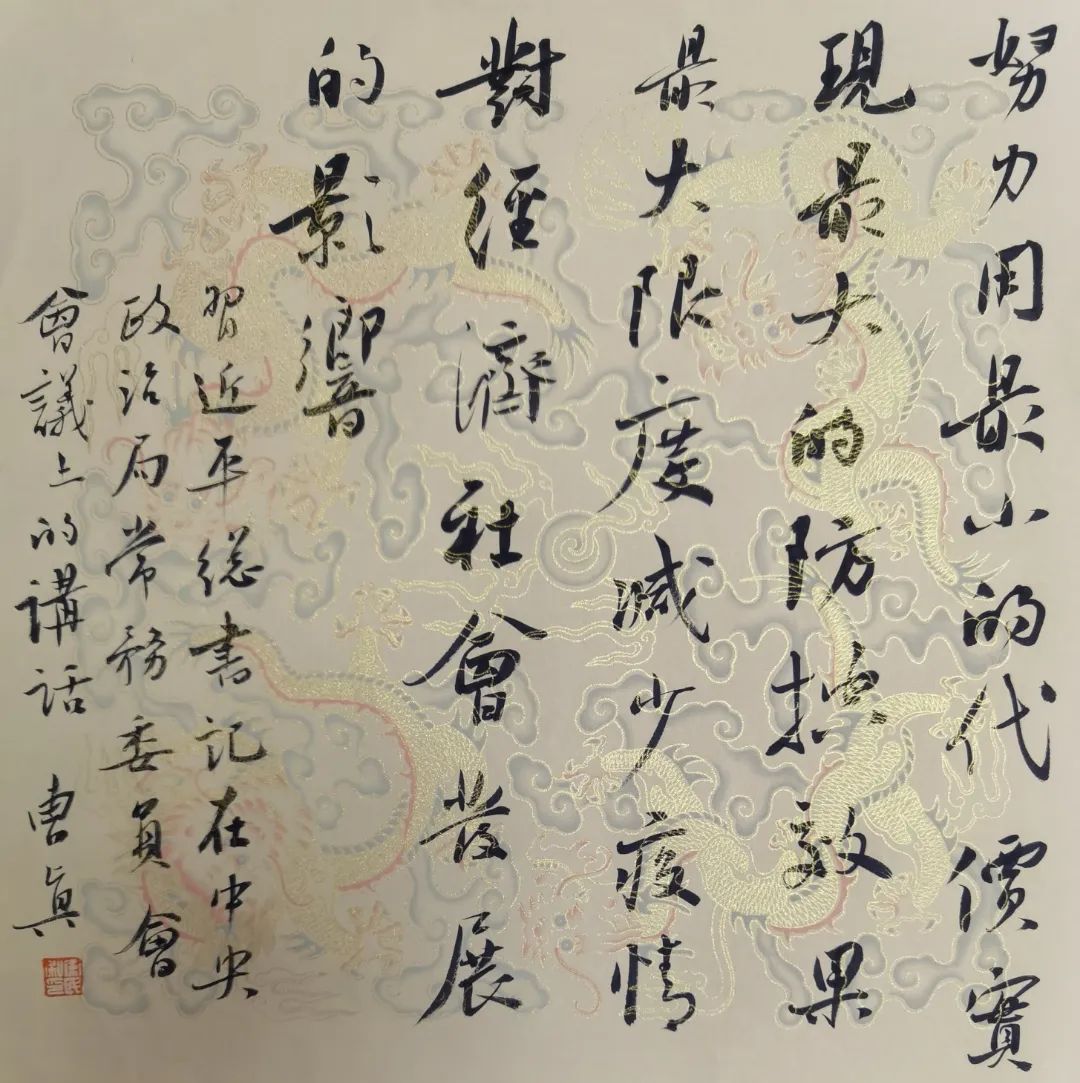 努力用最小的代價實
現最大的防控效果
最大限度減少疫情
對經濟社會發展
的影響
習近平總書記在中央
政治局常務委員會
會議上的講話 曹真